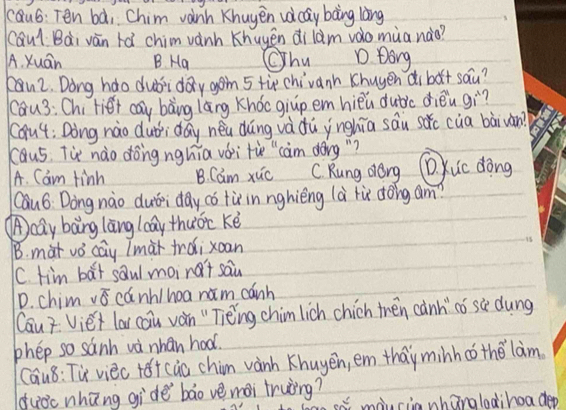 Câu 6: Tên bài. Chim vành Khuyên và cây bằng lăng
Câu 1. Bài văn tả chim vành Khuyên đi làm vào mùa nào?
A. Xuân B. Hạ C Thu D. Đông
Câu 2. Dòng nào dưới đây gồm 5 từ chỉ vành Khuyên đi bắt sâu?
Câu 3: Chi tiết cây bằng lăng Khóc giúp em hiểu được điều gì?
Câu 4: Dòng nào dưới đây nêu đúng và đủ ý nghĩa sâu sắc của bài văn?
Câu 5. Từ nào đồng nghĩa với từ "cảm động"?
A. Cảm tình B. Cảm xúc C. Rung động D. Xúc động
Câu 6: Dòng nào dưới đây có từ in nghiêng là từ đồng âm?
A cây bằng lăng / cây thước kẻ
B. mặt vỏ cây / mặt trái xoan
C. tìm bắt sâu / moi rất sâu
D. chim vỗ cánh / hoa năm cánh
Câu 7: Viết lại câu văn "Tiếng chim lích chích trên cành" có sử dụng
phép so sánh và nhân hoá.
Câu 8: Từ việc tốt của chim vành Khuyên, em thấy mình có thể làm
được những gì để bảo vệ môi trường?
sắc màu của những loài hoa đẹp